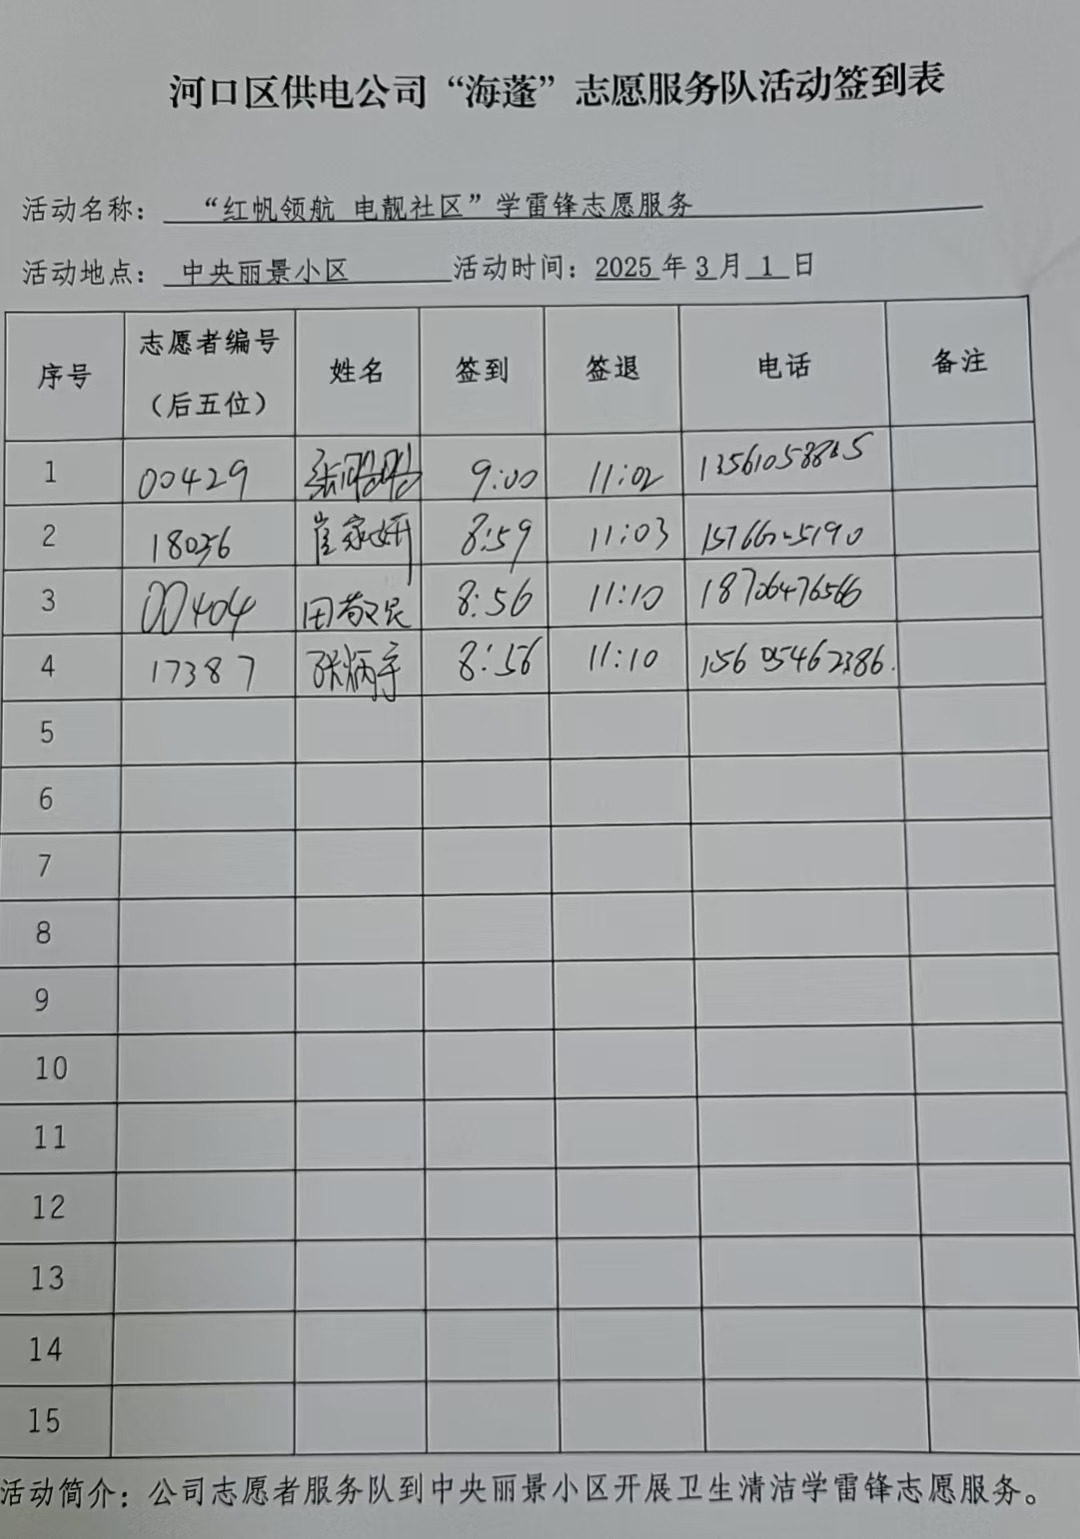 河口区供电公司“海蓬”志愿服务队活动签到表
活动名称：“红帆领航 电靓社区”学雷锋志愿服务
活动地点：中央丽景小区 活动时间：2025年3月1日
序号 志愿者编号（后五位） 姓名 签到 签退 电话 备注
1 00429 9:00 11:02
2 18036 崔家妍 8:59 11:03
3 00404 田敬民 8:56 11:10 18706476566
4 17387 张炳宇 8:56 11:10 15605462386.
5
6
7
8
9
10
11
12
13
14
15
活动简介：公司志愿者服务队到中央丽景小区开展卫生清洁学雷锋志愿服务。